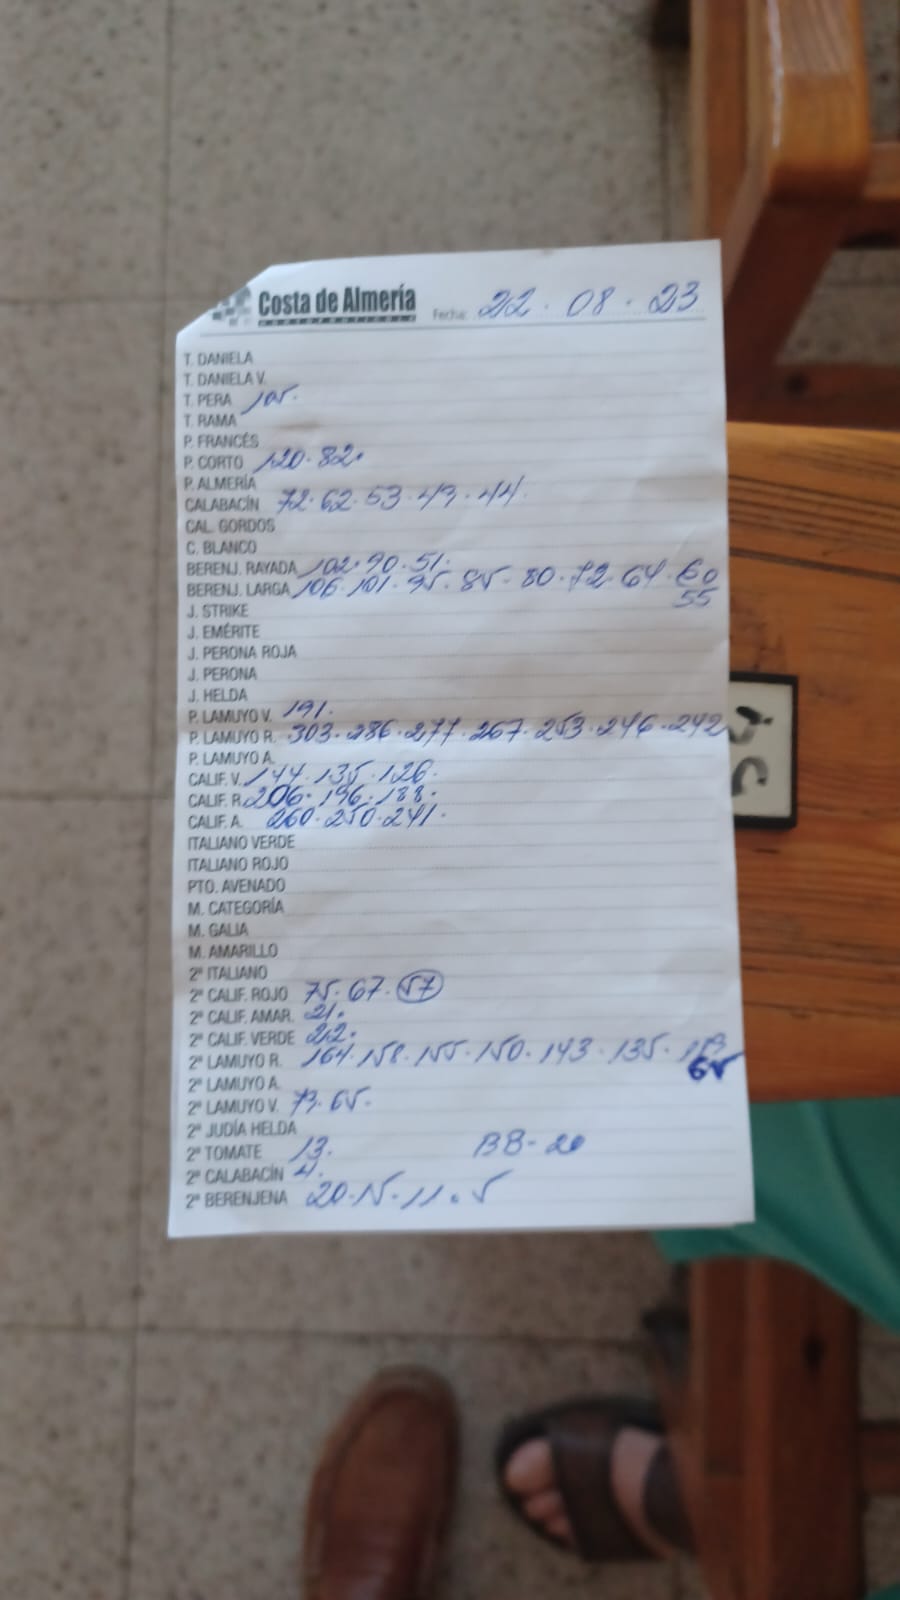 Costa de Almería
Fecha: 22 · 08 · 23
T. DANIELA
T. DANIELA V.
T. PERA 105.
T. RAMA
P. FRANCÉS
P. CORTO 120 · 82.
P. ALMERÍA
CALABACÍN 72 · 62 · 53 · 49 · 44.
CAL. GORDOS
C. BLANCO
BERENJ. RAYADA 102 · 90 · 51.
BERENJ. LARGA 106 · 101 · 95 · 85 · 80 · 72 · 64 · 60
55
J. STRIKE
J. EMÉRITE
J. PERONA ROJA
J. PERONA
J. HELDA
P. LAMUYO V. 191.
P. LAMUYO R. 303 · 286 · 277 · 267 · 253 · 246 · 242
P. LAMUYO A.
CALIF. V. 144 · 135 · 126.
CALIF. R. 206 · 196 · 188.
CALIF. A. 260 · 250 · 241.
ITALIANO VERDE
ITALIANO ROJO
PTO. AVENADO
M. CATEGORÍA
M. GALIA
M. AMARILLO
2ª ITALIANO
2ª CALIF. ROJO 75 · 67 · 57
2ª CALIF. AMAR. 21.
2ª CALIF. VERDE 22.
2ª LAMUYO R. 164 · 158 · 155 · 150 · 143 · 135 ·
65
2ª LAMUYO A.
2ª LAMUYO V. 73 · 65.
2ª JUDÍA HELDA
2ª TOMATE 13. BB - 20
2ª CALABACÍN 4.
2ª BERENJENA 20 · 15 · 11 · 5